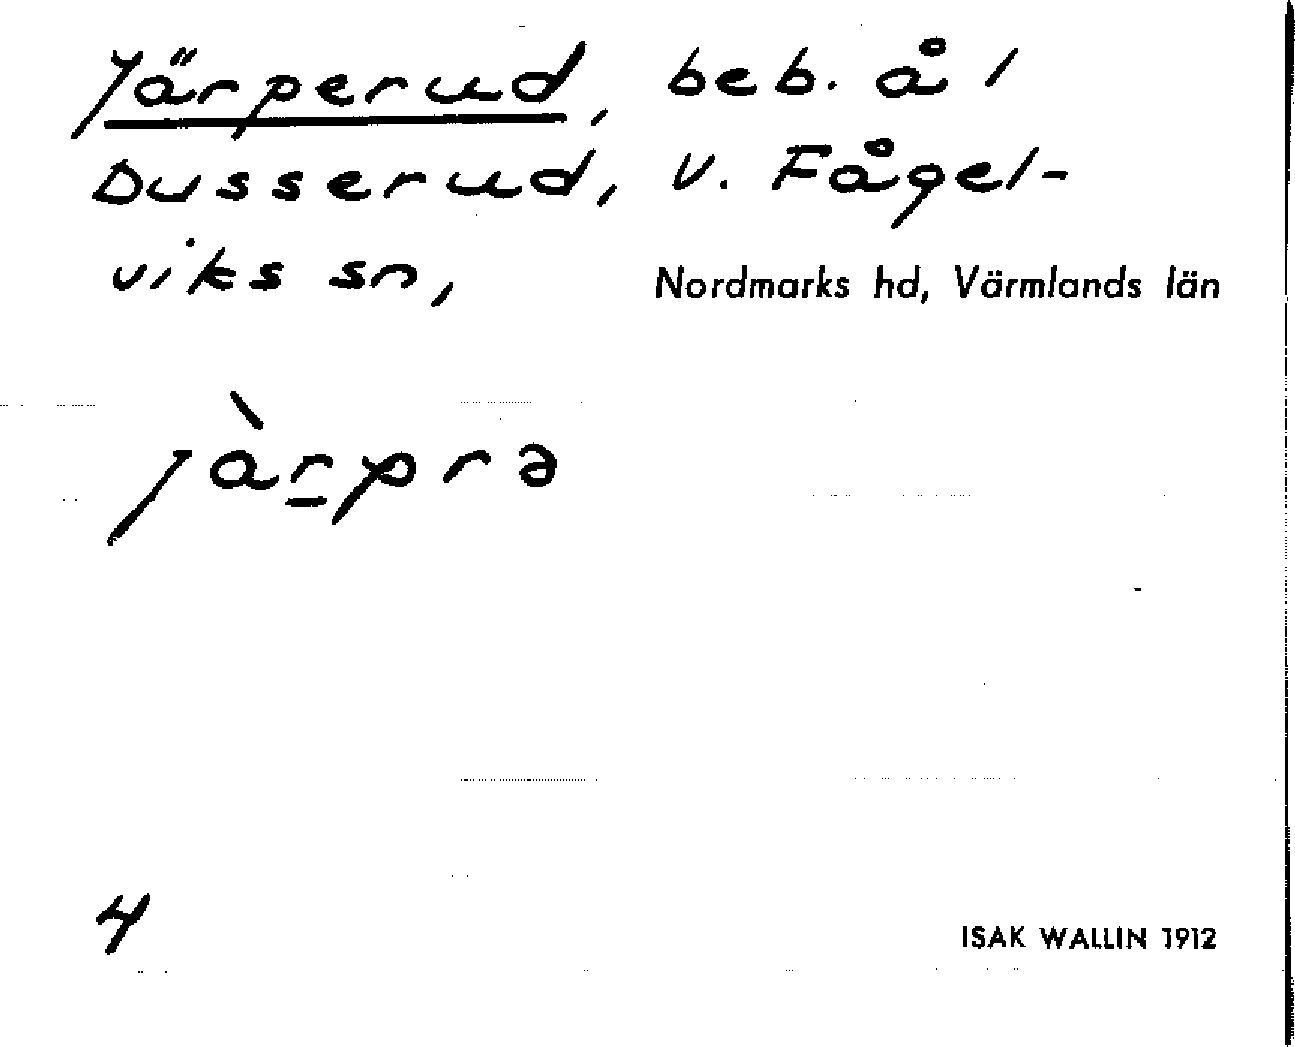 Järperud, beb. å 1
Dusserud, V. Fågel-
viks sn, Nordmarks hd, Värmlands län
jàr̲prə
4
ISAK WALLIN 1912